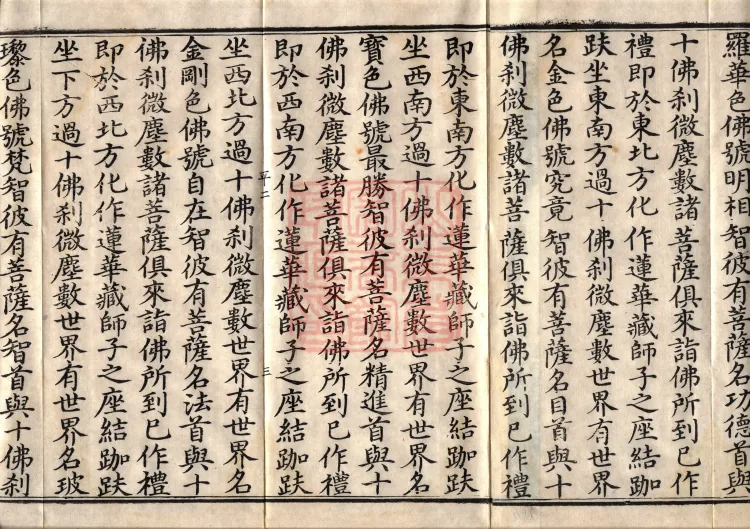 羅華色佛號明相智彼有菩薩名功德首與
十佛刹微塵數諸菩薩俱來詣佛所到已作
禮即於東北方化作蓮華藏師子之座結跏
趺坐東南方過十佛刹微塵數世界有世界
名金色佛號究竟智彼有菩薩名目首與十
佛刹微塵數諸菩薩俱來詣佛所到已作禮
即於東南方化作蓮華藏師子之座結跏趺
坐西南方過十佛刹微塵數世界有世界名
寶色佛號最勝智彼有菩薩名精進首與十
佛刹微塵數諸菩薩俱來詣佛所到已作禮
即於西南方化作蓮華藏師子之座結跏趺
平二 三
坐西北方過十佛刹微塵數世界有世界名
金剛色佛號自在智彼有菩薩名法首與十
佛刹微塵數諸菩薩俱來詣佛所到已作禮
即於西北方化作蓮華藏師子之座結跏趺
坐下方過十佛刹微塵數世界有世界名玻
瓈色佛號梵智彼有菩薩名智首與十佛刹